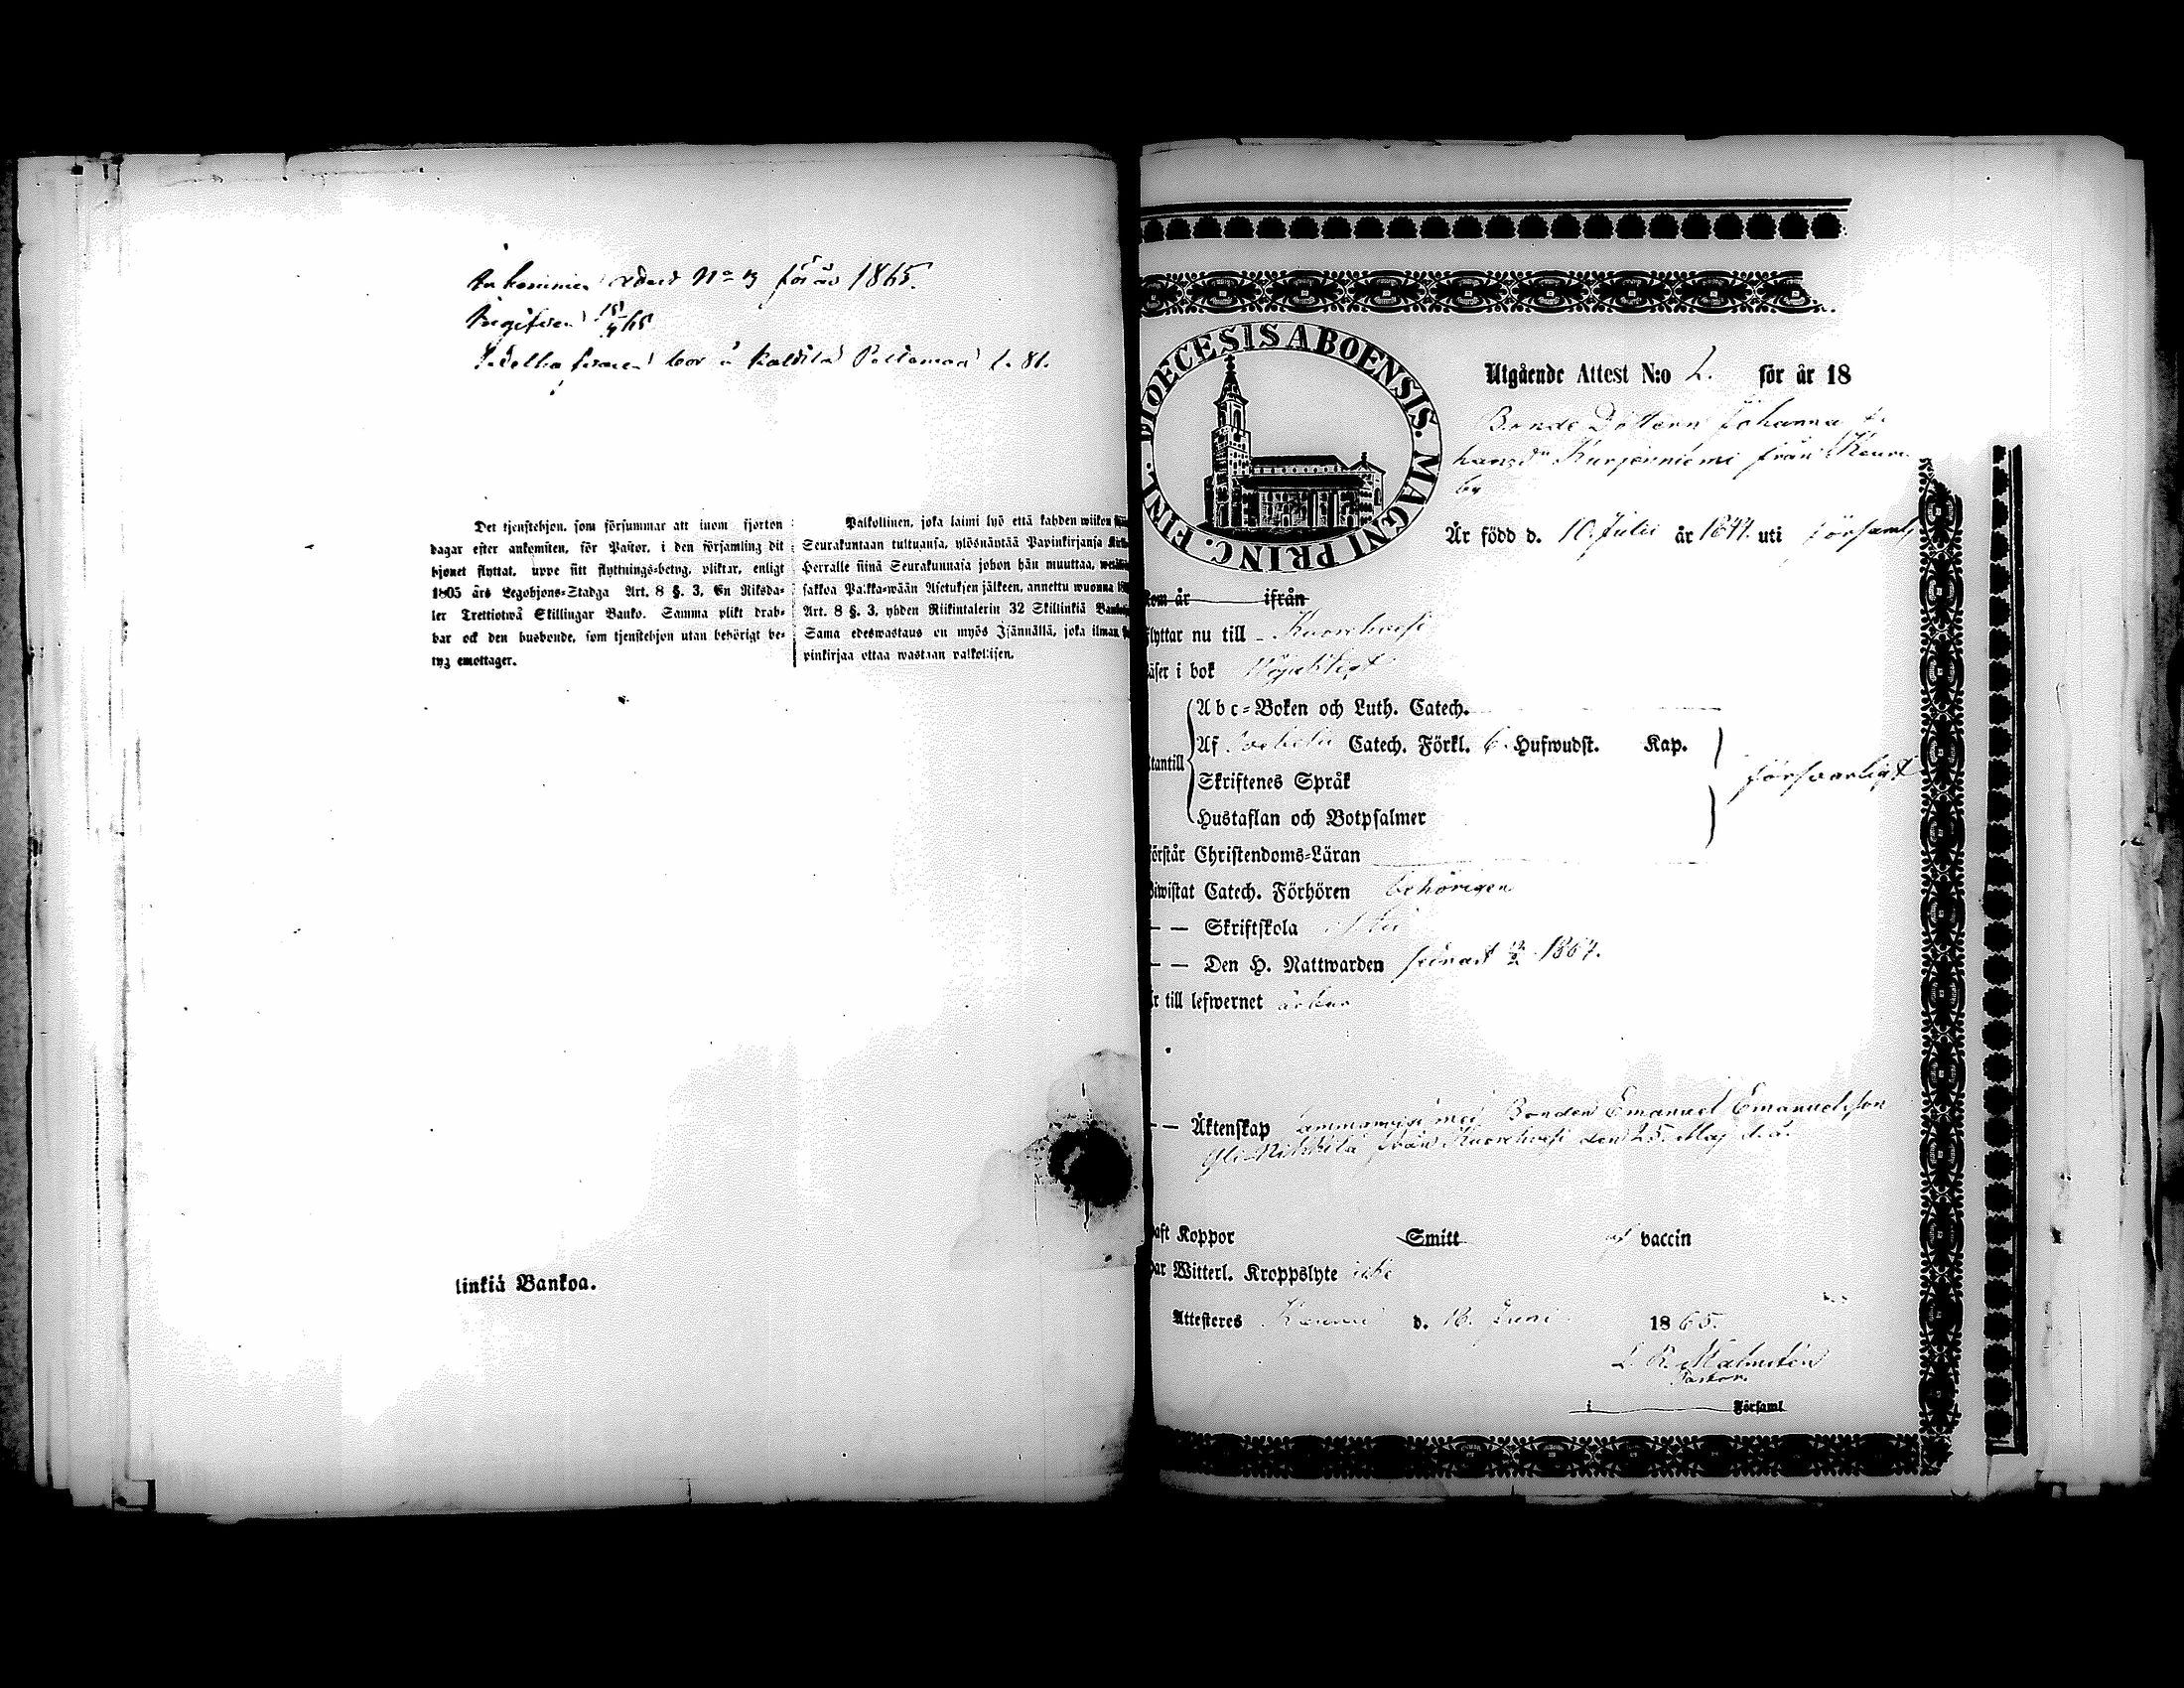 för år 1865.
Ingifven 15/4 65
bor å
Det tjenstehjon, som försummar att inom fjorton
dagar efter ankomsten, för Pastor, i den församling dit
hjonet flyttat, uppe sitt flyttnings=betyg, pliktar, enligt
1805 års Legohjons=Stadga Art. 8 §. 3, En Riksda=
ler Trettiotwå Skillingar Banko. Samma plikt drab=
bar ock den husbonde, som tjenstehjon utan behörigt be=
tyg emottager.
Palkollinen, joka laimi lyö että kahden wiikon
Seurakuntaan tultuansa, ylösnäytää Papinkirjansa
Herralle siinä Seurakunnasa johon hän muuttaa,
sakkoa Palkka=wään Asetuksen jälkeen, annettu wuonna
Art. 8 §. 3, yhden Riikintalerin 32 Skillinkiä
Sama edeswastaus on myös Isännällä, joka ilman
pinkirjaa ottaa wastaan palkollisen.
linkiä Bankoa.
FINL. DIOECESIS ABOENSIS. MAGNI PRINC.
Utgående Attest N:o 2. för år 18
Bonde Dottern Johanna
Kurjenniemi från
by
Är född d. 10 Julii år 1844. uti församl
kom år ifrån
flyttar nu till Kuorehvesi
läser i bok
Abc=Boken och Luth. Catech.
Af Catech. Förkl. 6 Hufwudst. Kap.
utantill
Skriftenes Språk
försvarligt
Hustaflan och Botpsalmer
förstår Christendoms=Läran
biwistat Catech. Förhören behörigen
— — Skriftskola
— — Den H. Nattwarden senast 1864.
är till lefwernet ärbar
— — Äktenskap med Bonden Emanuel Emanuelsson
Yli Mikkilä från Kuorehvesi den 25. Maj d. å.
haft Koppor Smitt af vaccin
har Witterl. Kroppslyte icke
Attesteres Keuru d. 18. Juni 1865.
L. R. Malmstén
Pastor.
i Församl